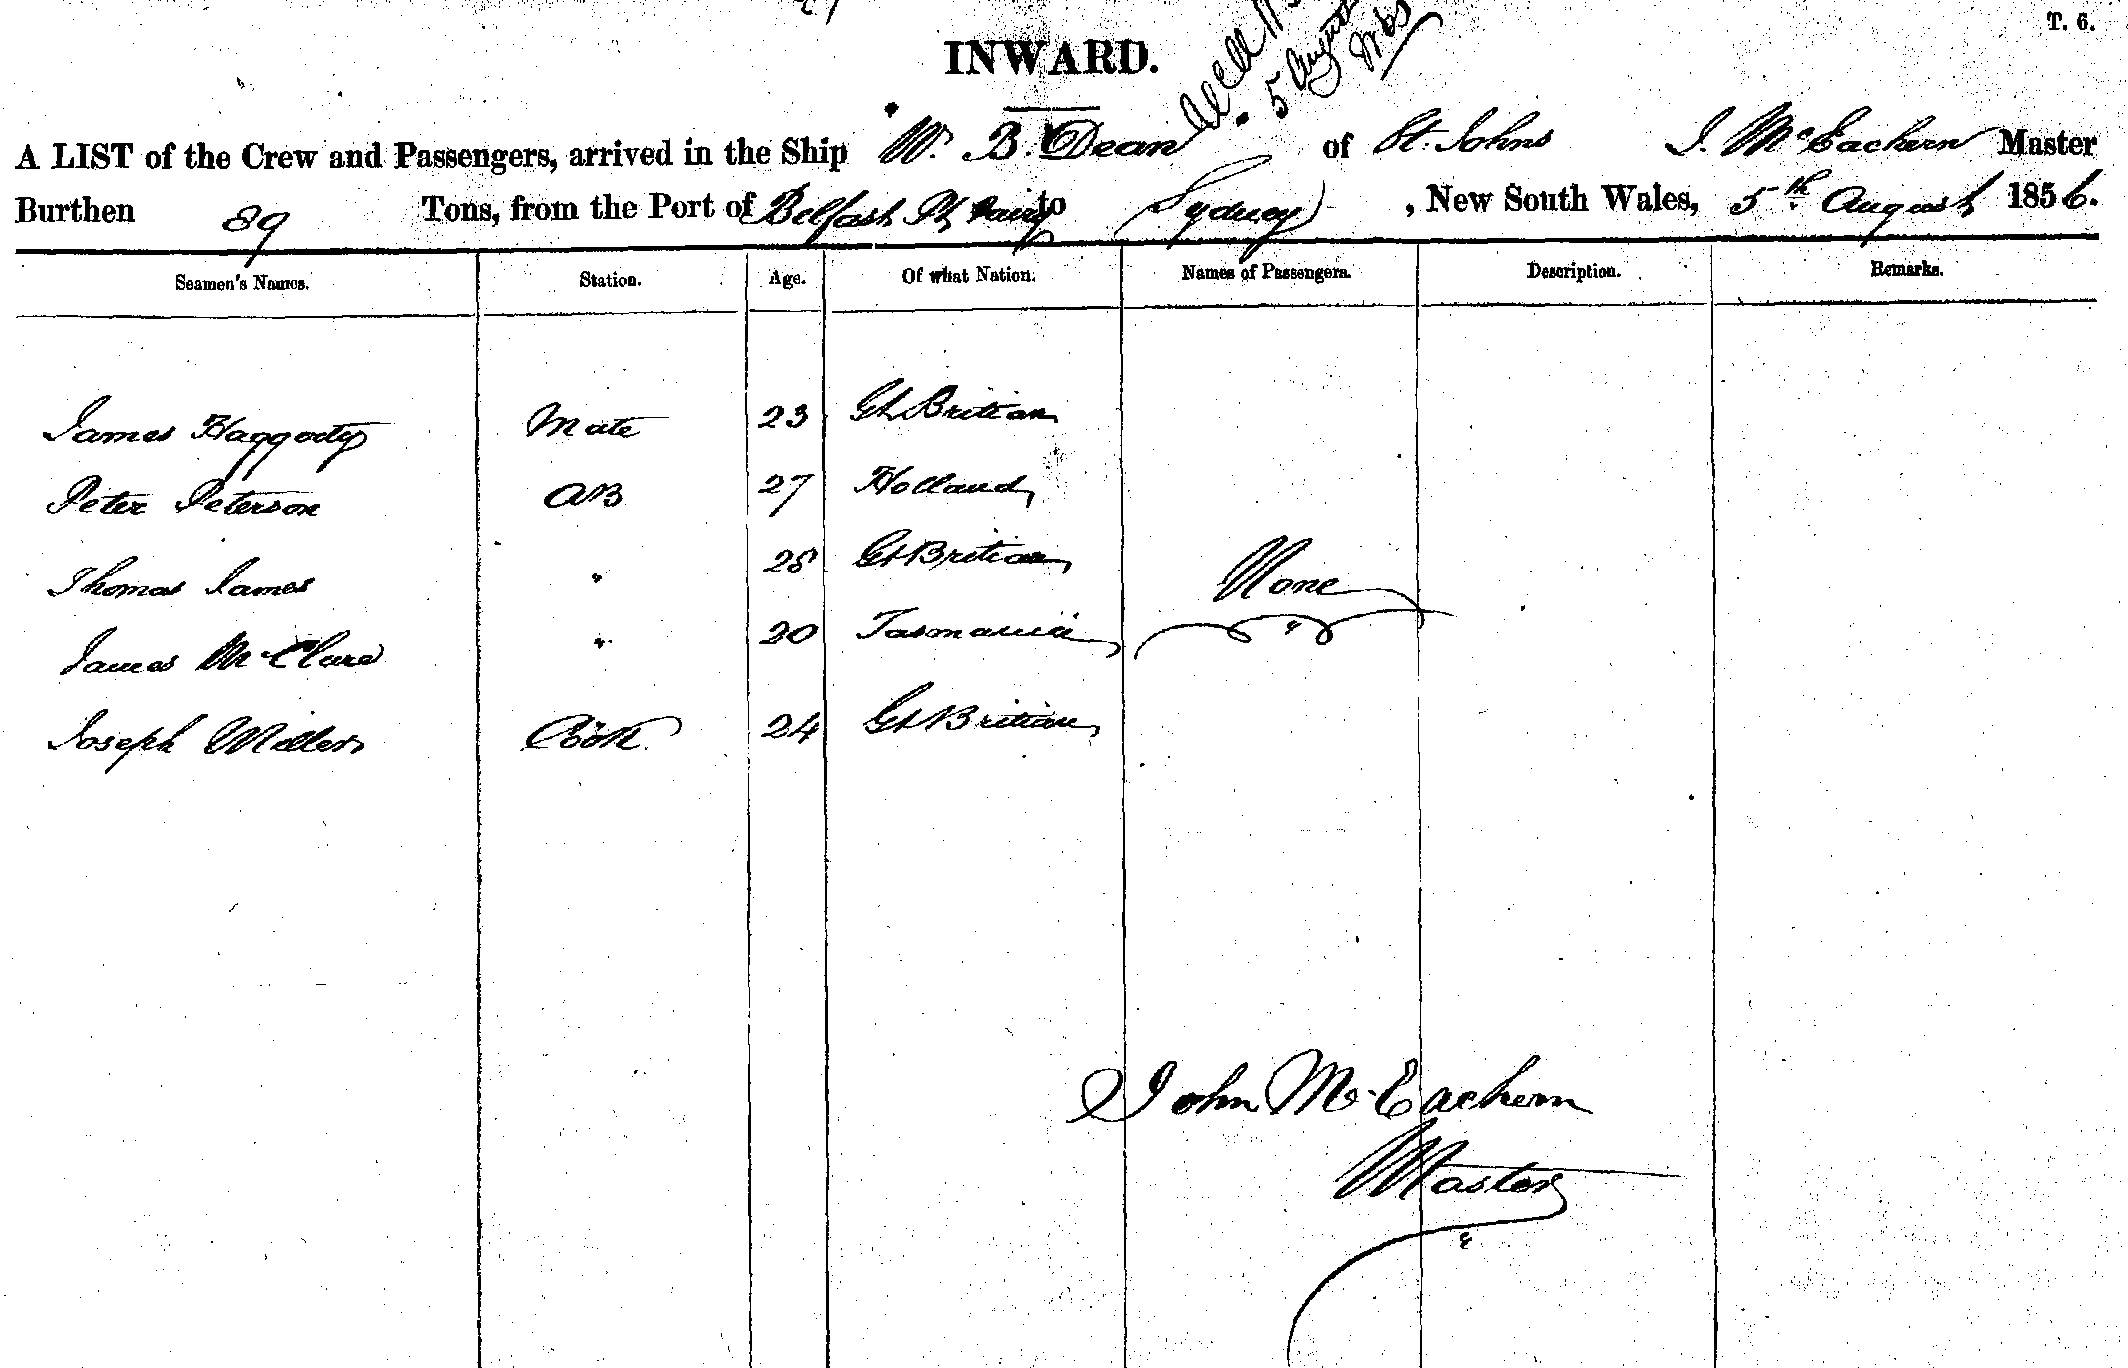 T. 6.
INWARD.
5 August
A LIST of the Crew and Passengers, arrived in the Ship W. B. Dean of St. Johns J. McEachern Master
Burthen 89 Tons, from the Port of Belfast Pt Fairy to Sydney, New South Wales, 5th August 1856.
Seamen's Names. Station. Age. Of what Nation. Names of Passengers. Description. Remarks.
James Haggody Mate 23 Gt Britian
Peter Peterson AB 27 Holland
Thomas James " 28 Gt Britian None
James McClure " 20 Tasmania
Joseph Miller Cook 24 Gt Britian
John McEachern
Master